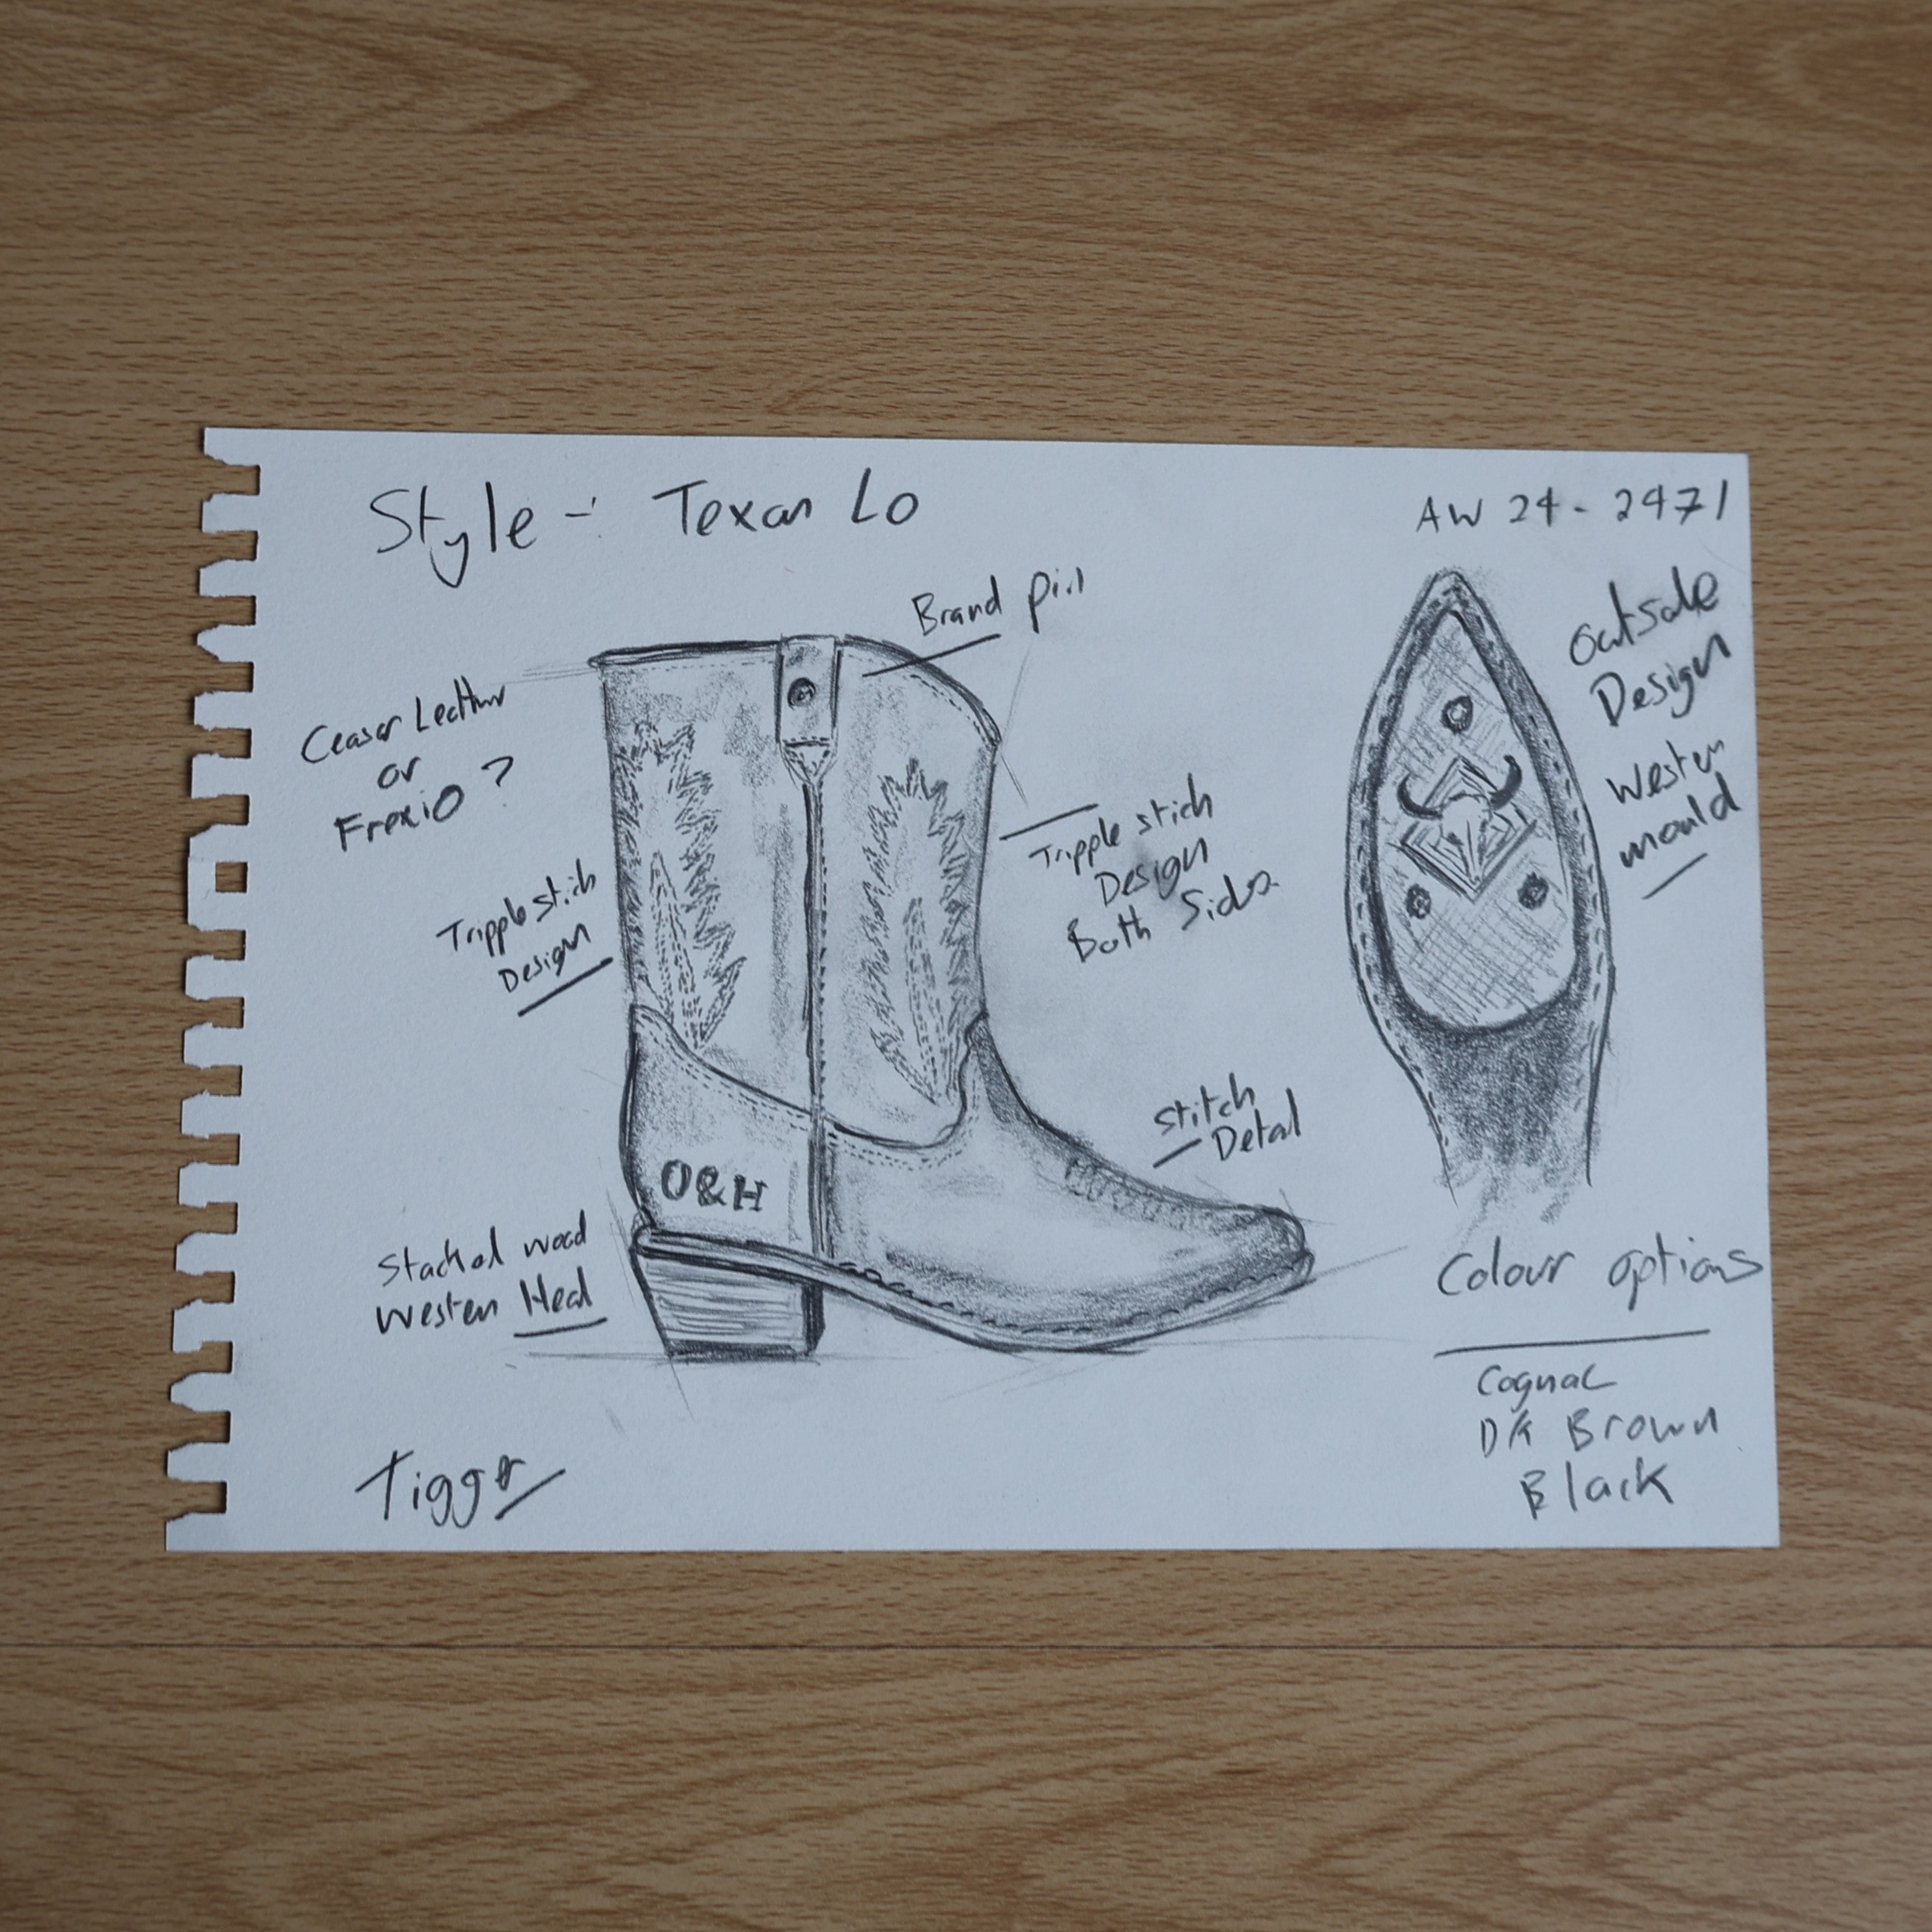 Style - Texan Lo
AW 24 - 2471
Brand pin
Outsole
Design
Western
mould
Ceaser Leather
or
Frexio ?
Tripple stich
Design
Both Sides
Tripple stich
Design
Stitch
Detail
O&H
Stacked wood
Western Heel
Colour options
Cognac
DK Brown
Black
Tigger